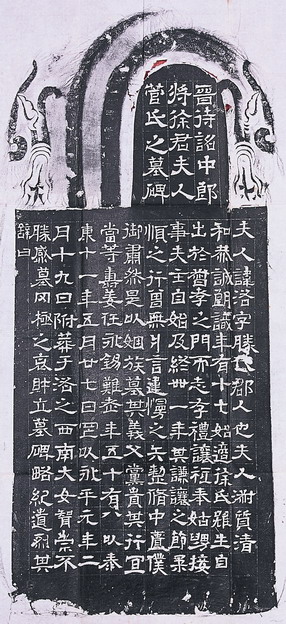 晉待詔中郎
將徐君夫人
菅氏之墓碑
夫人諱洛字勝代郡人也夫人淑質清
和恭誠朗識年有十七始適徐氏雖生自
出於督孝之門而志存禮讓祗奉姑舅接
事夫主自始及終卅一年其謙讓之節
順之行曾無片言違慢之矢製脩中匱僕
御肅然是以姻族慕其義父黨貴其行宜
當等壽姜任永錫難老年五十有八以泰
康十一年五月廿七日以永平元年二
月十九日附葬于洛之西南大女智崇不
勝嚴墓罔極之哀財立墓碑略紀遺烈其
辭曰